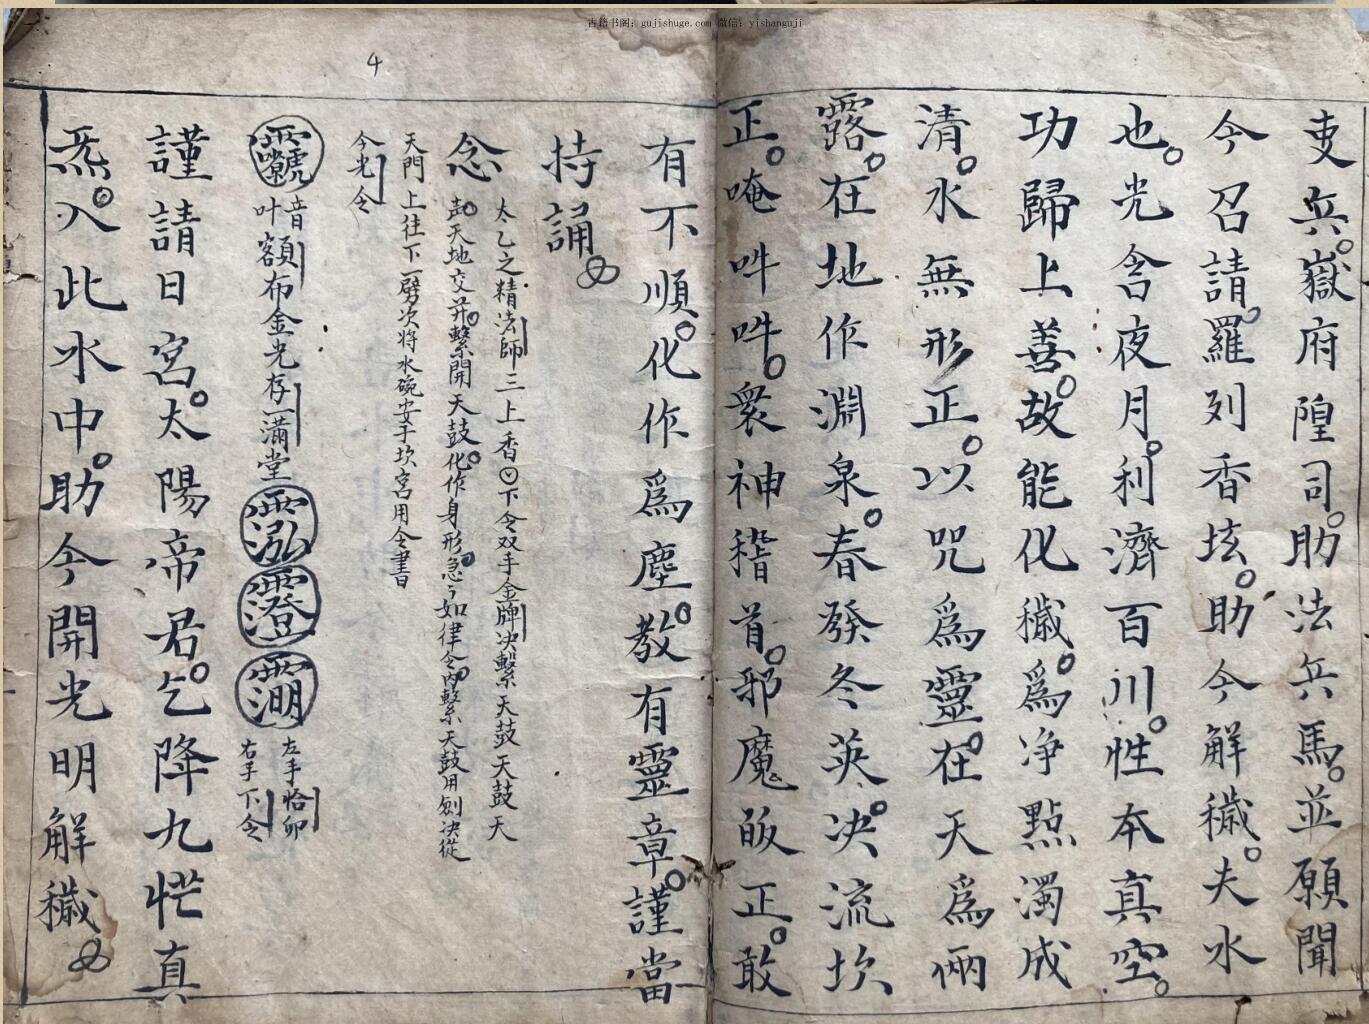 古籍书阁：gujishuge.com 微信：yishanguji
吏兵。嶽府隍司。助法兵馬。並願聞
今召請。羅列香垓。助今解穢。夫水
也。光含夜月。利濟百川。性本真空。
功歸上善。故能化穢。爲净點濁成
清。水無形正。以咒爲靈。在天爲雨
露。在地作淵泉。春發冬英。决流坎
正。唵吽吽。眾神稽首。邪魔皈正。敢
有不順。化作爲塵。教有靈章。謹當
持誦。
太乙之精法師三上香。下令双手金牌决繫天鼓天鼓天
念 天地交并。繫開天鼓。化作身形。急々如律令。内繫天鼓用劍决從
天門上往下一劈次將水碗安于坎宮用令書
令光令
音叶額布金光存一滿堂
左手恰卯
右手下令
謹請日宮。太陽帝君。乞降九恾真
炁。入此水中。助今開光明解穢
4